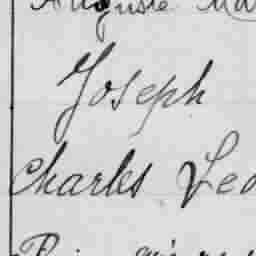 Auguste Ma
Joseph
Charles Leo